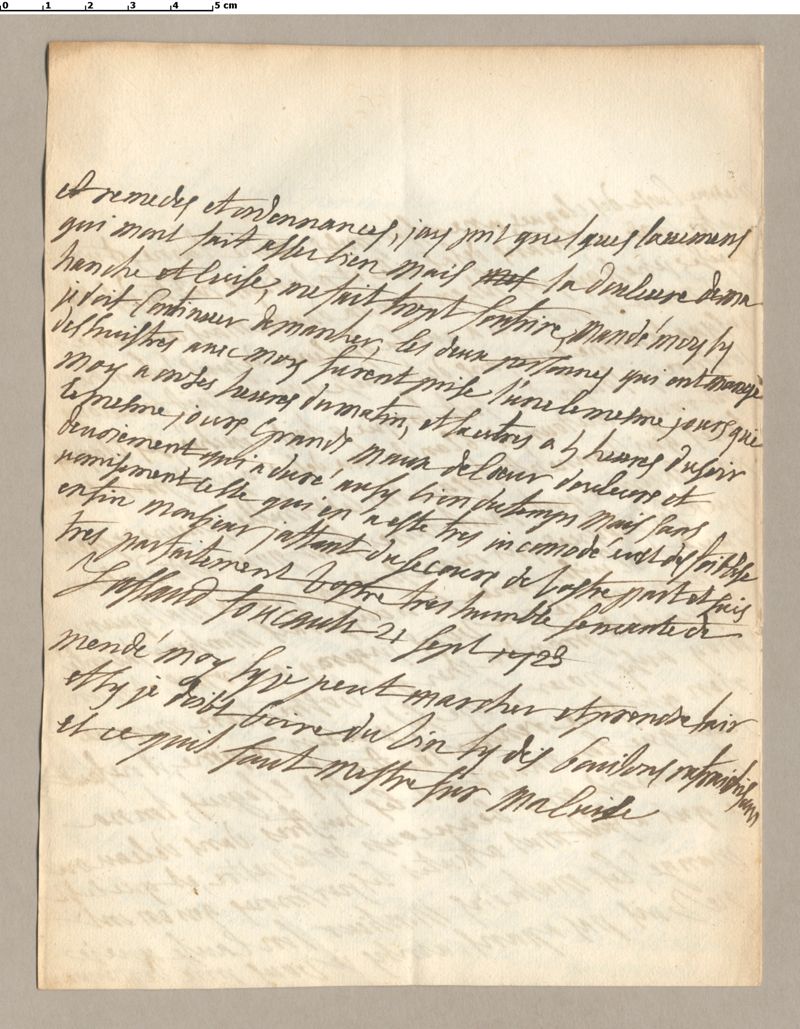 0 1 2 3 4 5 cm
et remedes et ordonnances, jay pris quelques lavemens
qui mont fait aller bien mais la douleure de ma
hanche et cuise, me fait tropt soufrire, mandé moy sy
je doit continuer de marcher, les deux personnes qui ont mangé
des huistres avec moy furent prise l'une le mesme jours que
moy a onzes heures du matin, et lautres a 5 heures du soir
le mesme jours grands maux de coeur douleurs et
devoiement qui a duré ausy bien du temps mais sans
vomisement celle qui en a esté tres incomodé est des foiblese
enfin monsieur jattant du secours de vostre part et suis
tres parfaitement vostre tres humble servante de
foucault 21 sept 1723
mendé moy sy je peut marcher et prendre lair
et sy je doibt boire du vin sy des bouilons rafraichisans
et ce quil faut mestre sur ma cuise